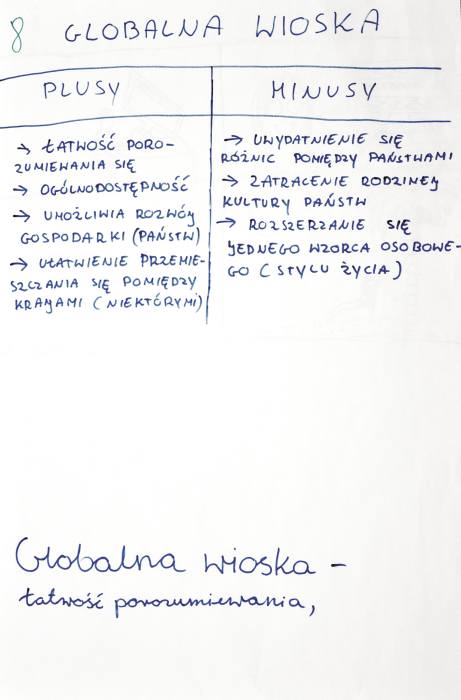 8 GLOBALNA WIOSKA
PLUSY
MINUSY
→ ŁATWOŚĆ PORO-
ZUMIEWANIA SIĘ
→ OGÓLNODOSTĘPNOŚĆ
→ UMOŻLIWIA ROZWÓJ
GOSPODARKI (PAŃSTW)
→ UŁATWIENIE PRZEMIE-
SZCZANIA SIĘ POMIĘDZY
KRAJAMI (NIEKTÓRYMI)
→ UWYDATNIENIE SIĘ
RÓŻNIC POMIĘDZY PAŃSTWAMI
→ ZATRACENIE RODZINEJ
KULTURY PAŃSTW
→ ROZSZERZANIE SIĘ
JEDNEGO WZORCA OSOBOWE-
GO (STYLU ŻYCIA)
Globalna wioska -
łatwość porozumiewania,